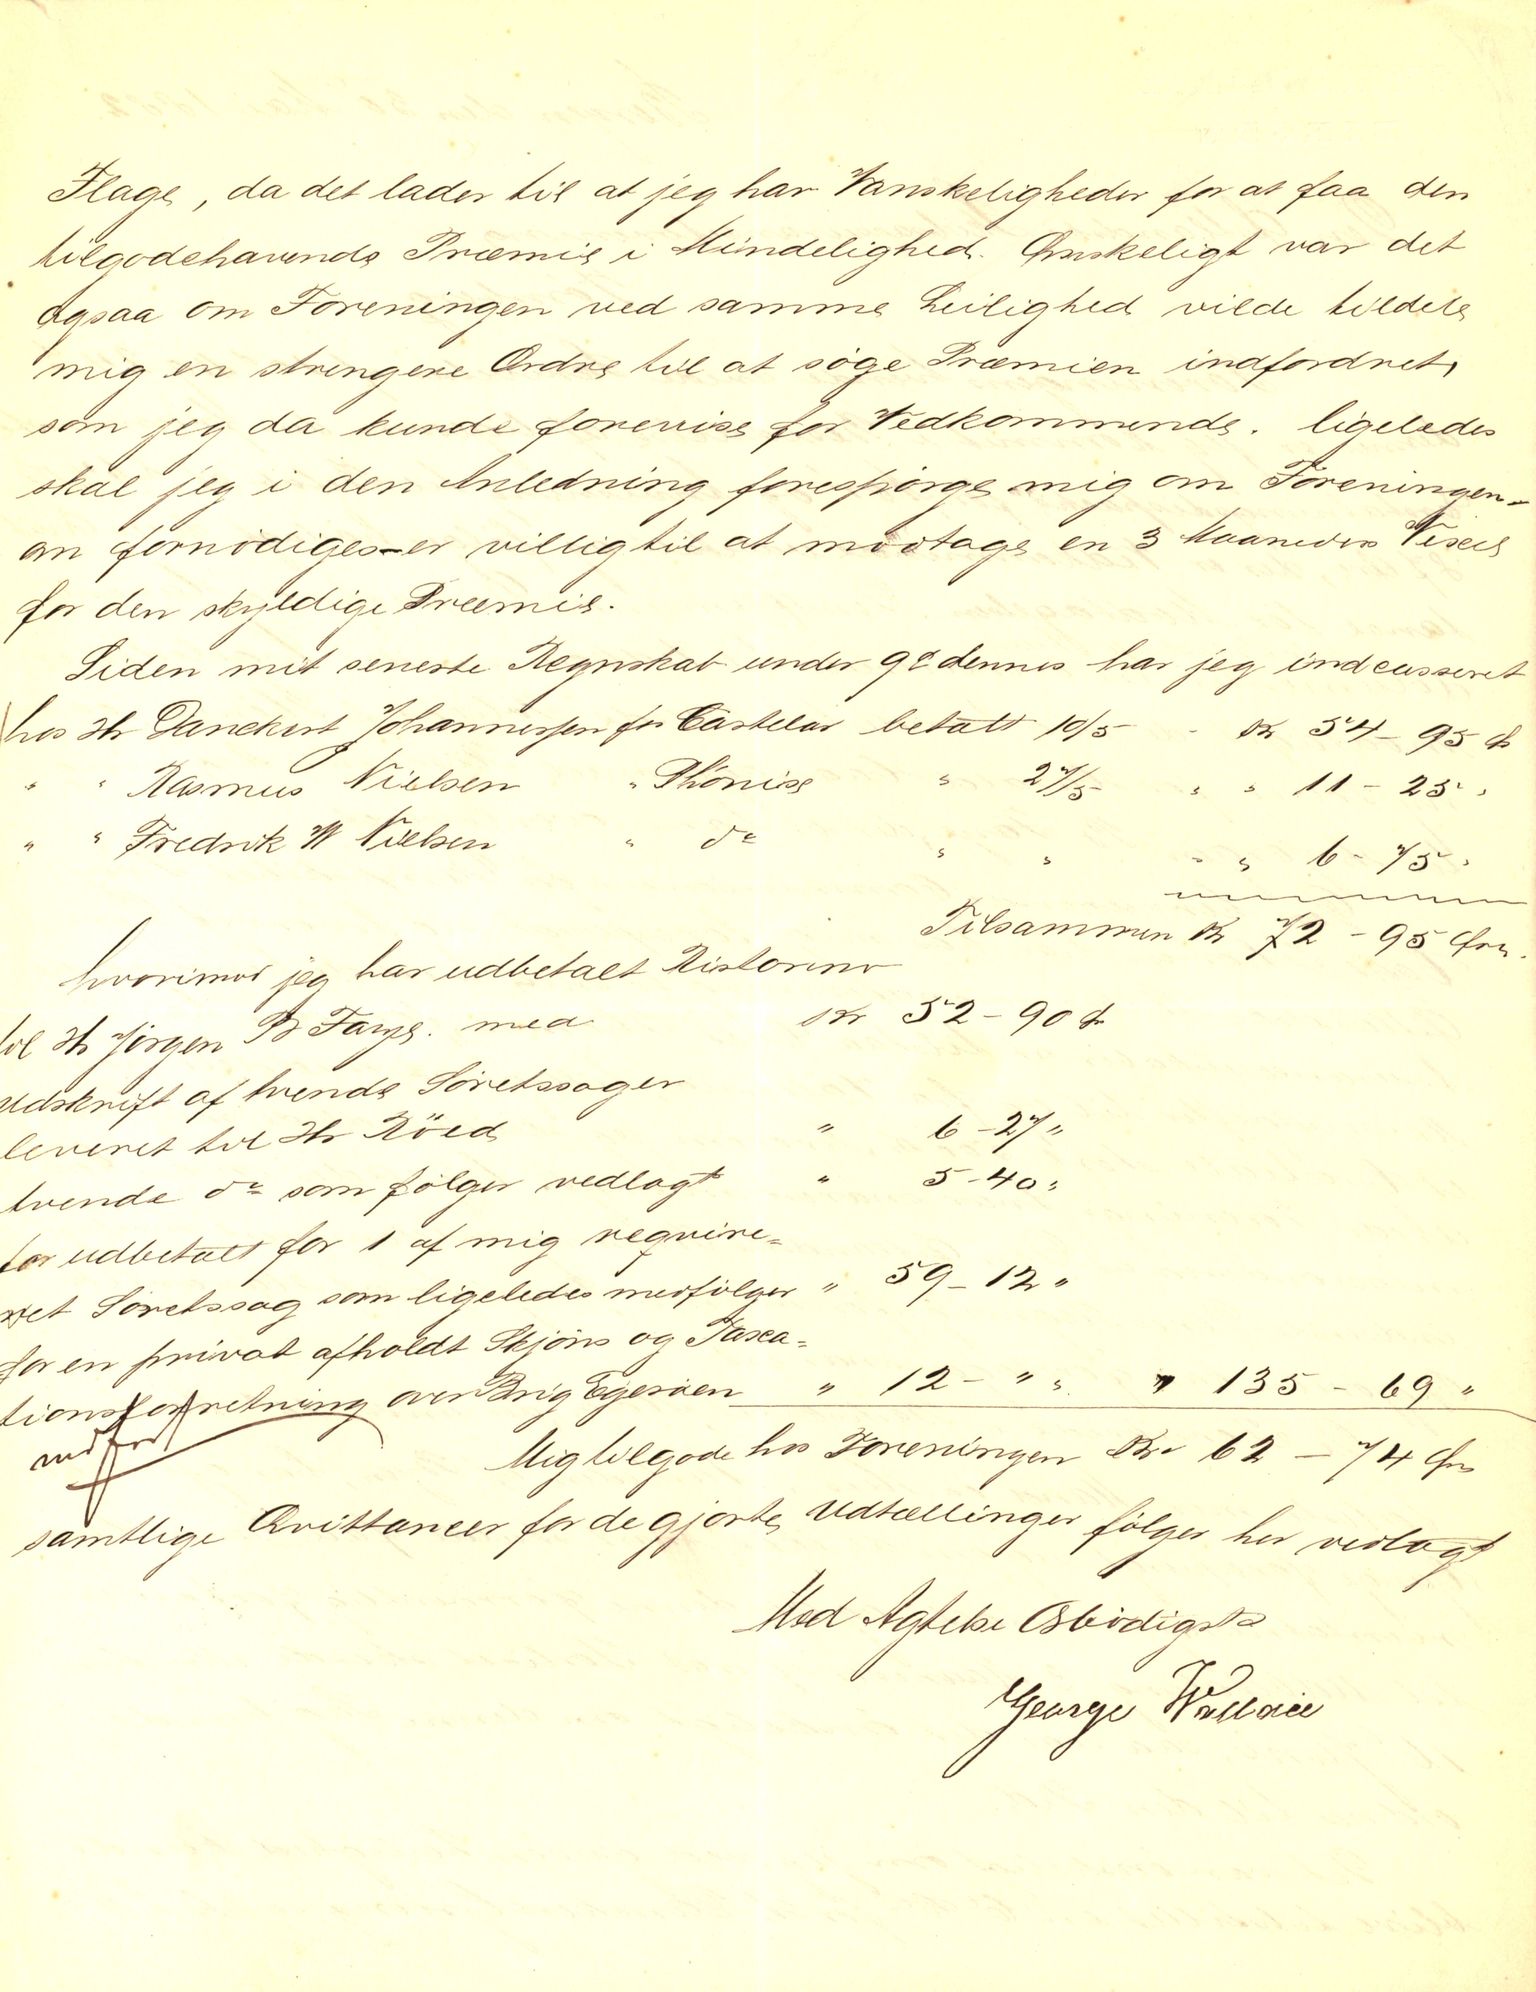 Flage, da det lader til at jeg har Vanskeligheder for at faa den
tilgodehavende Præmie i Mindelighed. Ønskeligt var det
ogsaa om Foreningen ved samme Leilighed vilde tildele
mig en strengere Ordre til at søge Præmien indfordret,
som jeg da kunde forevise for Vedkommende. ligeledes
skal jeg i den Anledning forespørge mig om Foreningen-
om fornødiges-er villig til at modtage en 3 Maaneders Vexel
for den skyldige Præmie.
Siden mit seneste Regnskab under 9d dennes har jeg indcasseret
hos Hr Danckert Johannessen for Castelar betalt 10/5 - Kr 54-95 Ø
" " Rasmus Nielsen " Phönixe " 27/5 " " 11-25 "
" " Fredrik W Nielsen " do " " " " 6-75 "
Tilsammen Kr 72-95 Øre.
hvorimod jeg har udbetalt Ristorno
til Hr Jørgen B Faye. med Kr 52-90 Ø
Udskrift af tvende Søretssager
leveret til Hr Röed " 6-27 "
tvende do som følger vedlagt " 5-40 "
for udbetalt for 1 af mig reqvire=
ret Søretssag som ligeledes medfølger " 59-12 "
for en privat afholdt Skjøns og Taxa=
tionsforretning over Brig Egerøen " 12- " " " 135-69 "
Mig tilgode hos Foreningen Kr 62-74 Øre
samtlige Qvittancer for de gjorte Udtællinger følger her vedlagt
Med Agtelse Ærbødigst
George Wallace